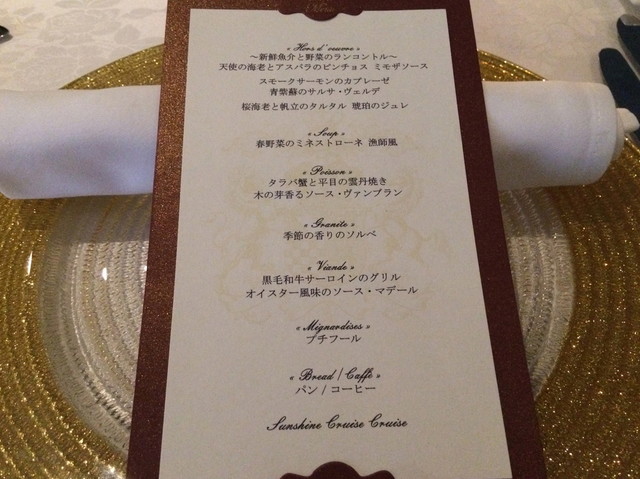 Menu
« Hors d'oeuvre »
～新鮮魚介と野菜のランコントル～
天使の海老とアスパラのピンチョス ミモザソース
スモークサーモンのカプレーゼ
青紫蘇のサルサ・ヴェルデ
桜海老と帆立のタルタル 琥珀のジュレ
« Soup »
春野菜のミネストローネ 漁師風
« Poisson »
タラバ蟹と平目の雲丹焼き
木の芽香るソース・ヴァンブラン
« Granite »
季節の香りのソルベ
« Viande »
黒毛和牛サーロインのグリル
オイスター風味のソース・マデール
« Mignardises »
プチフール
« Bread / Caffè »
パン / コーヒー
Sunshine Cruise Cruise